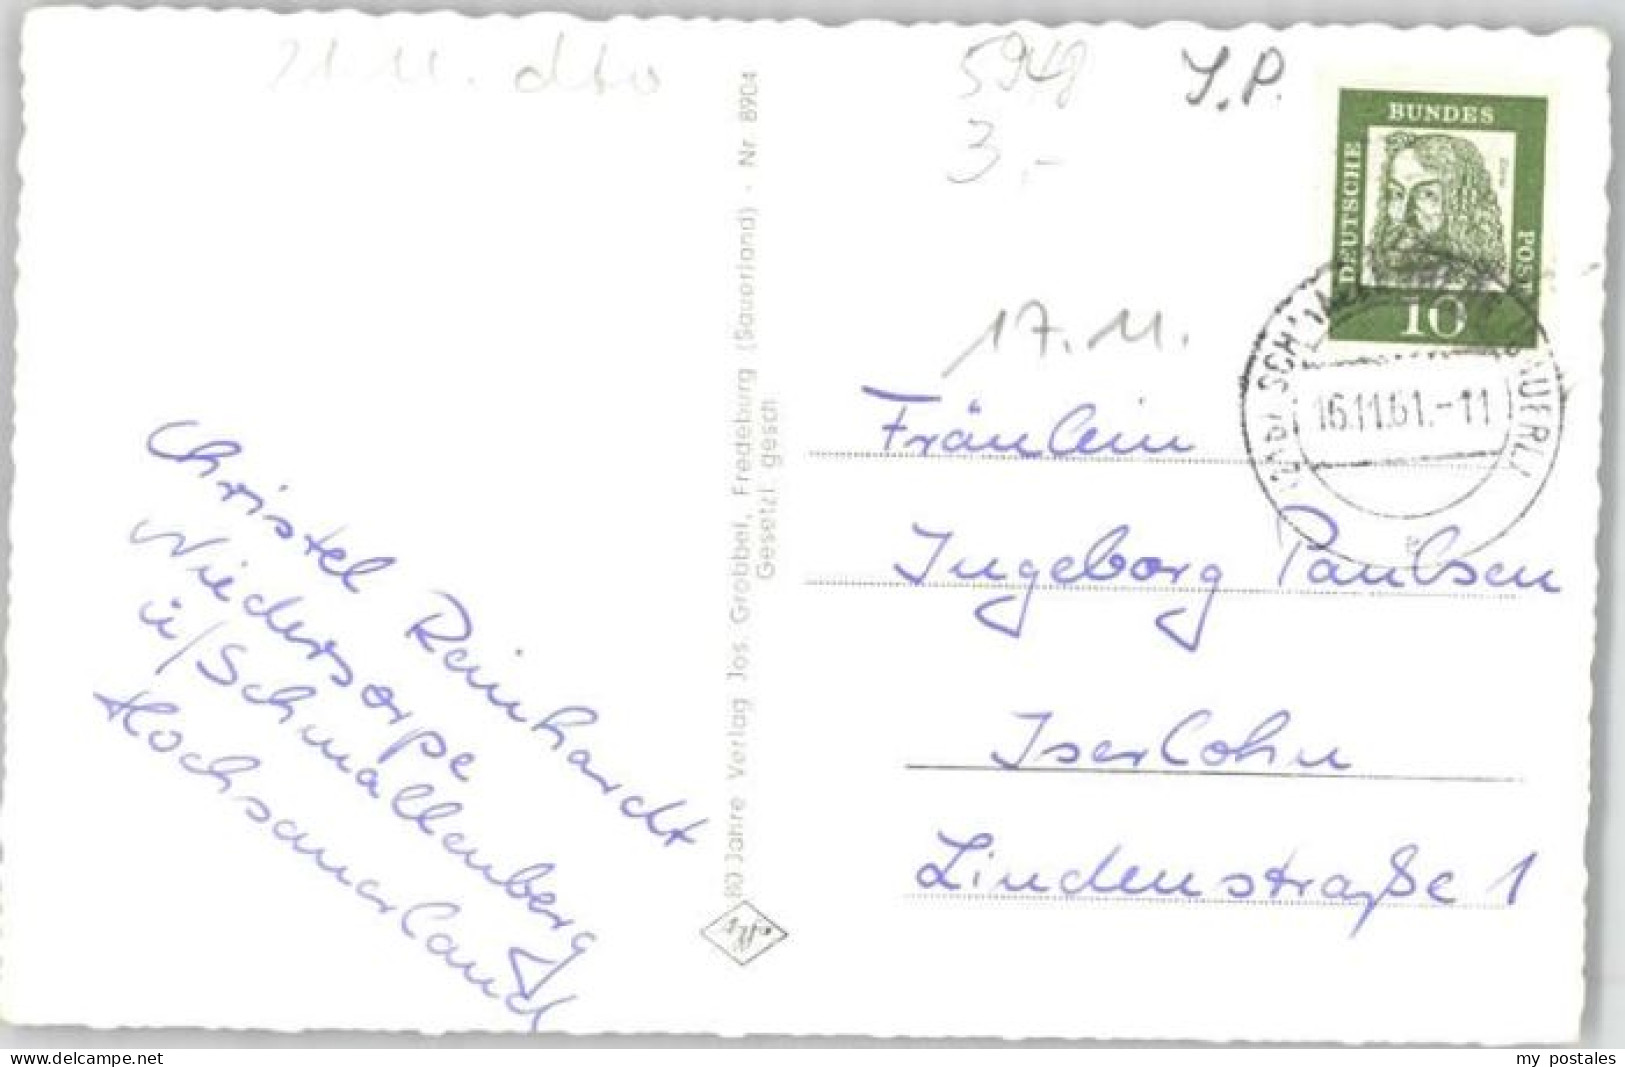 21.11. dto
5948
3,-
J.P.
BUNDES
DEUTSCHE
POST
10
16.11.61.-11
17.11.
Fräulein
Ingeborg Paulsen
Iserlohn
Lindenstraße 1
Christel Reinhardt
Niedersorpe
ü/Schmallenberg
Hochsauerland
80 Jahre Verlag Jos. Grobbel, Fredeburg (Sauerland) - Nr. 8904
Gesetzl. gesch.
delcampe.net
my_postales